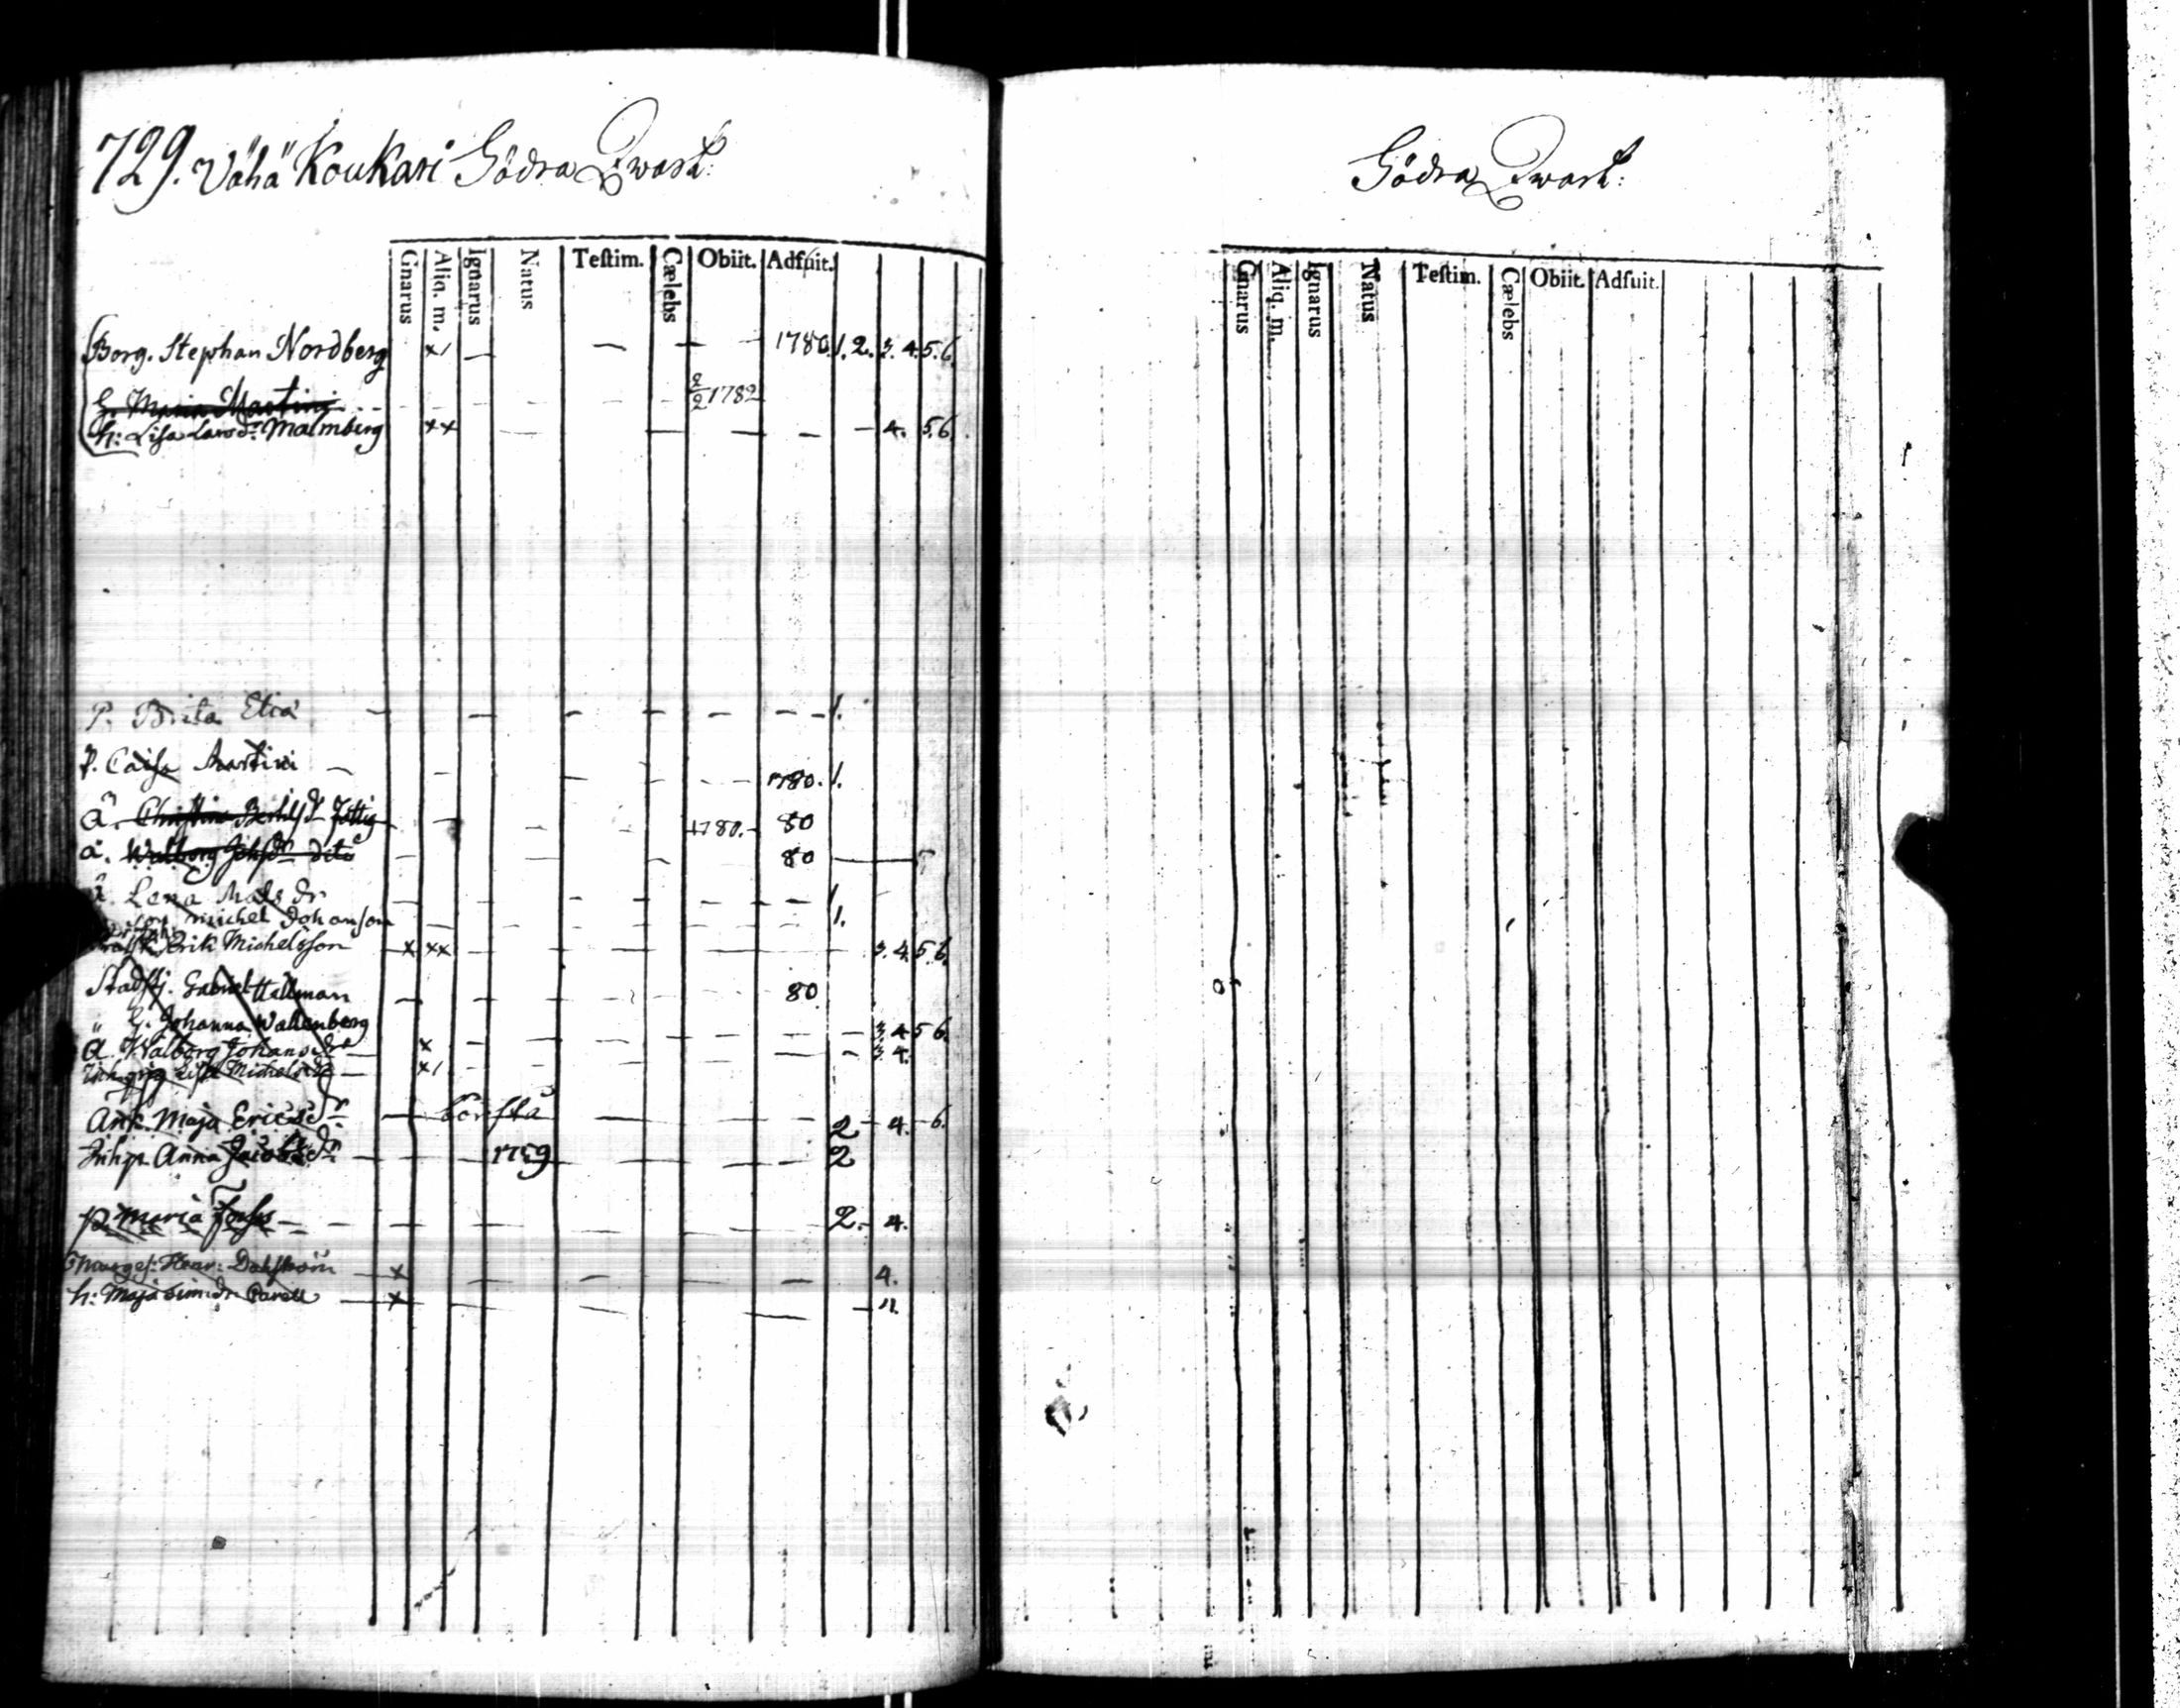 729. Vähä Koukari Södra Qwart:
Gnarus Aliq. m. Ignarus Natus Testim. Cælebs Obiit. Adfuit.
Borg. Stephan Nordberg x/ — — — 1780 1. 2. 3. 4. 5. 6.
h. Maria Martini 2/2 1782
h: Lisa Larsdr: Malmberg xx — — — — — 4. 5. 6.
P. Brita — — — — — — 1.
P. Caisa Martini — — — — — 1780. 1.
Ä. Christina — — — 1780. 80
ä. Walborg dito — — — — 80
Lena Mats dr — — — — — 1.
michel Johanson — — — — — 1.
Erik Michelsson x xx — — — — — 3. 4. 5. 6.
Stadstj. Gabriel Hellman — — — — — 80
h. Johanna Wallenberg — 3. 4 5 6.
Ä Walborg Johansdr x — — — — — — 3. 4.
Lisa Michelsdr x/ — — — —
Änk. Maja Ericsdr — — — 2 - 4. - 6.
Inhp. Anna Jacobsdr — — 1759 — — — — 2
p. Maria — — — — — — — 2. 4.
Henr: Dahlström x — — — — 4.
h: Maja Simdr x — — — — 4.
Södra Qwart:
Gnarus Aliq. m. Ignarus Natus Testim. Cælebs Obiit. Adfuit.